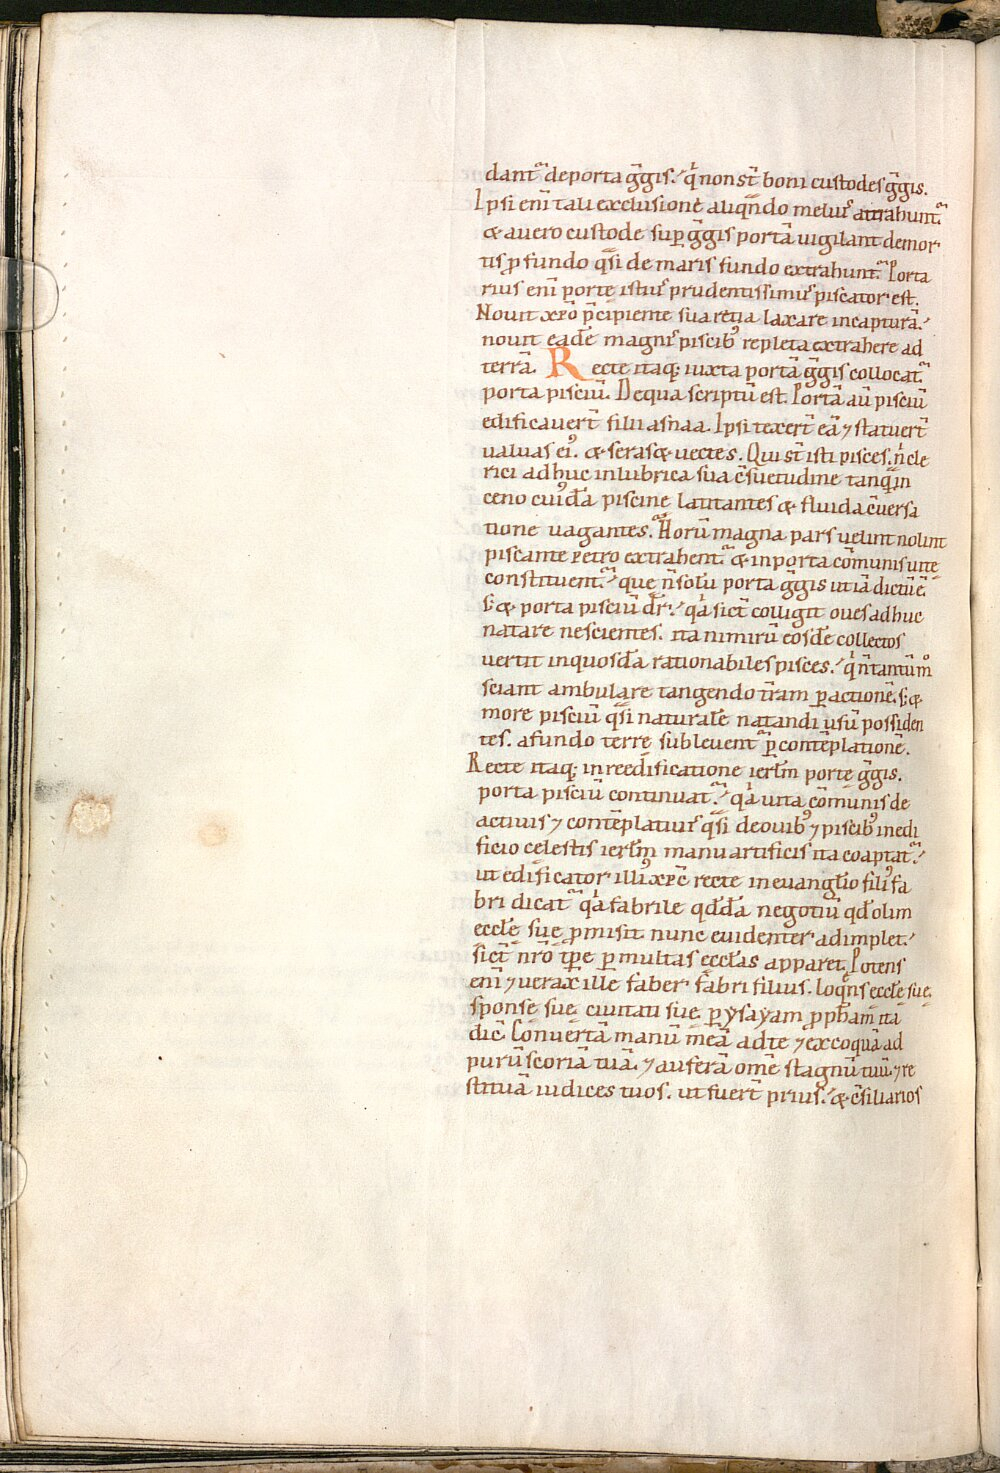 dant᷑ de porta g̃gis. q̇ non st̄ boni custodes g̃gis.
Ipsi eni̅ tali exclusione aliqn̄do meliꝰ attrahunt᷑
& a uero custode sup g̃gis portā uigilant de mor
tis ꝓfundo qͣsi de maris fundo extrahunt᷑. Porta
rius eni̅ porte istiꝰ prudentissimꝰ piscator est.
Nouit xp̄o p̄cipiente sua retia laxare in capturā.
nouit eadē magnis piscibꝰ repleta extrahere ad
terrā. Recte itaq; iuxta portā g̃gis collocat᷑
porta pisciū. De qua scriptū est. Portā aū pisciū
edificauert̄ filii asnaa. Ipsi texert̄ eā ⁊ statuert̄
ualuas eiꝰ. & seras & uectes. Qui st̄ isti pisces. n̄ cle
rici adhuc in lubrica sua c̄suetudine tanqͣ in
ceno cuiꝰdā piscine latitantes & fluida c̄uersa
tione uagantes. Horū magna pars uelint nolint
piscante retro extrahent᷑ & in porta cōmunis uite
constituent᷑. que n̄ solū porta g̃gis ut iā dictū ē.
s; & porta pisciū dr̄. qͣ sic̄ colligit oues adhuc
natare nescientes. ita nimirū eosdē collectos
uertit in quosdā rationabiles pisces. q̇ n̄ tantūmͦ
sciant ambulare tangendo t̄ram ꝑ actionē. s; &
more pisciū qͣsi naturalē natandi usū possiden
tes. a fundo terrę subleuent᷑ ꝑ contēplationē.
Recte itaq; in reedificatione ierłm porte g̃gis.
porta pisciū continuat᷑. qͣ uita cōmunis de
actiuis ⁊ contēplatiuis qͣsi de ouibꝰ ⁊ piscibꝰ in edi
ficio celestis ierłm manu artificis ita coaptat᷑.
ut edificator illiꝰ xp̄c recte in euanglio filiꝰ fa
bri dicat᷑ qͣ fabrile qd̄dā negotiū qd̄ olim
eccłę suę ꝓmisit nunc euidenter adimplet.
sic̄ nr̄o tp̄e ꝑ multas eccłas apparet. Potens
eni̅ ⁊ uerax ille faber fabri filius. loqn̄s eccłę suę
sponsę suę ciuitati suę ꝑ ysayam ꝓpham ita
dic̄. Conuertā manū meā ad te ⁊ excoquā ad
purū scoriā tuā. ⁊ auferā om̄e stagnū tuū. ⁊ re
stituā iudices tuos. ut fuert̄ prius. & c̄siliarios